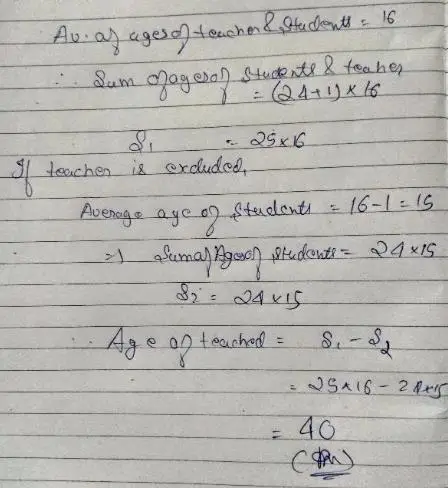 Av. of ages of teacher & students = 16
∴ Sum of ages of students & teacher
= (24+1) × 16
S₁ = 25×16
If teacher is excluded,
Average age of students = 16-1 = 15
⇒ Sum of Ages of students = 24 × 15
S₂ = 24×15
∴ Age of teached = S₁ - S₂
= 25×16 - 24×15
= 40
(Ans)